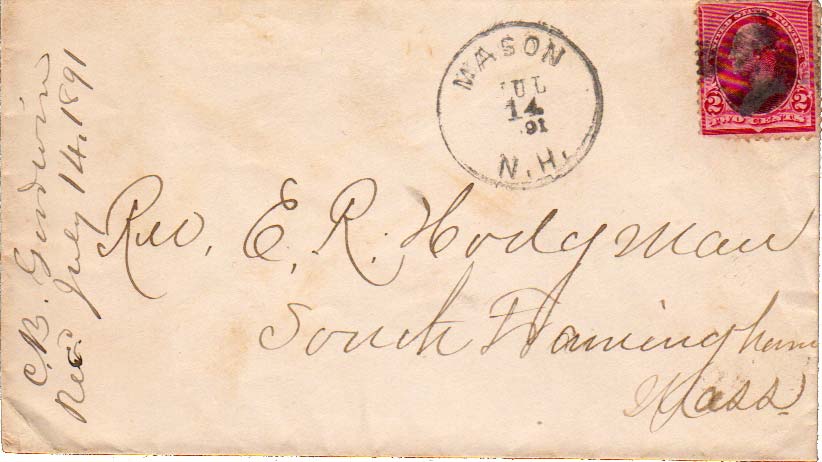 C.B. Goodwin
Rec'd July 14, 1891
MASON
JUL
14
91
N.H.
UNITED STATES POSTAGE
2 2
TWO CENTS
Rev. E. R. Hodgman
South Framingham
Mass